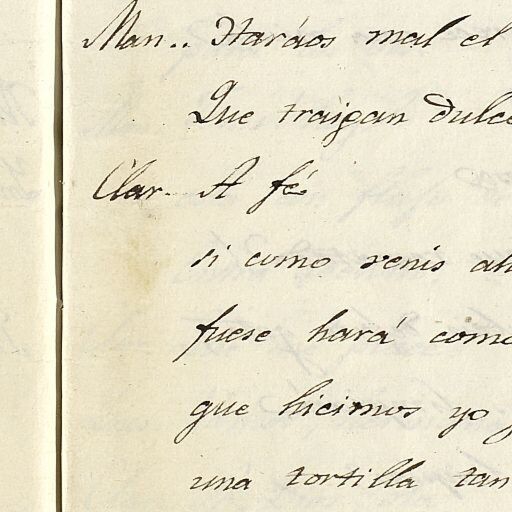 Man.. Haráos mal el
Que traigan dulce
Clar. A fé
si como venis ah
fuese hará como
que hicimos yo
una tortilla tan